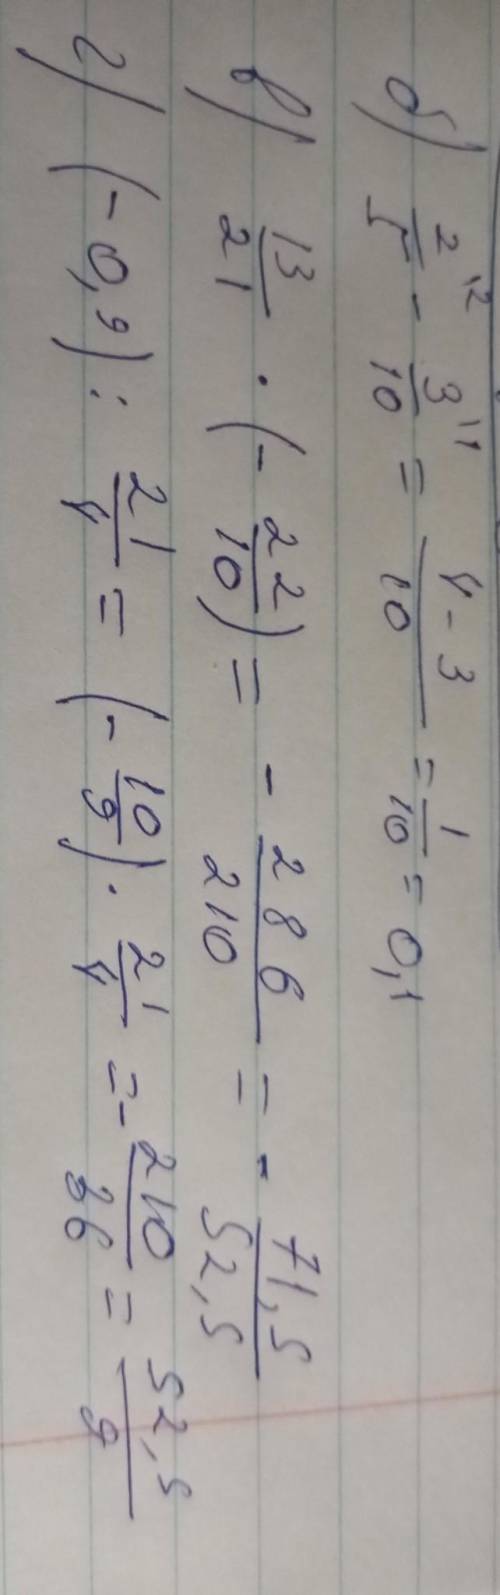 б) 2/5 ^{\2} - 3/10 ^{\1} = (4 - 3)/10 = 1/10 = 0,1
в) 13/21 · (- 22/10) = - 286/210 = - 71,5/52,5
г) (- 0,9) : 21/4 = (- 10/9) · 21/4 = - 210/36 = 52,5/9